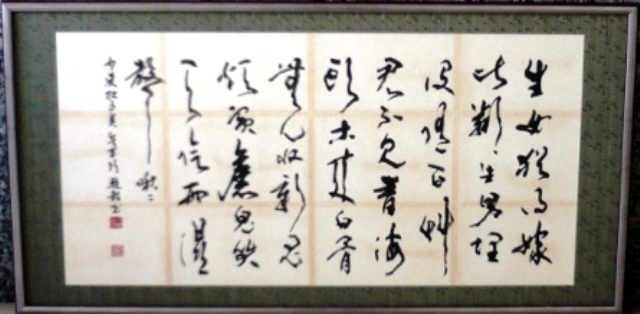 生女猶得嫁
比鄰生男埋
沒隨百艸
君不見青海
頭古來白骨
無人收新鬼
煩冤舊鬼哭
天陰雨濕
聲啾々
杜子美兵車行